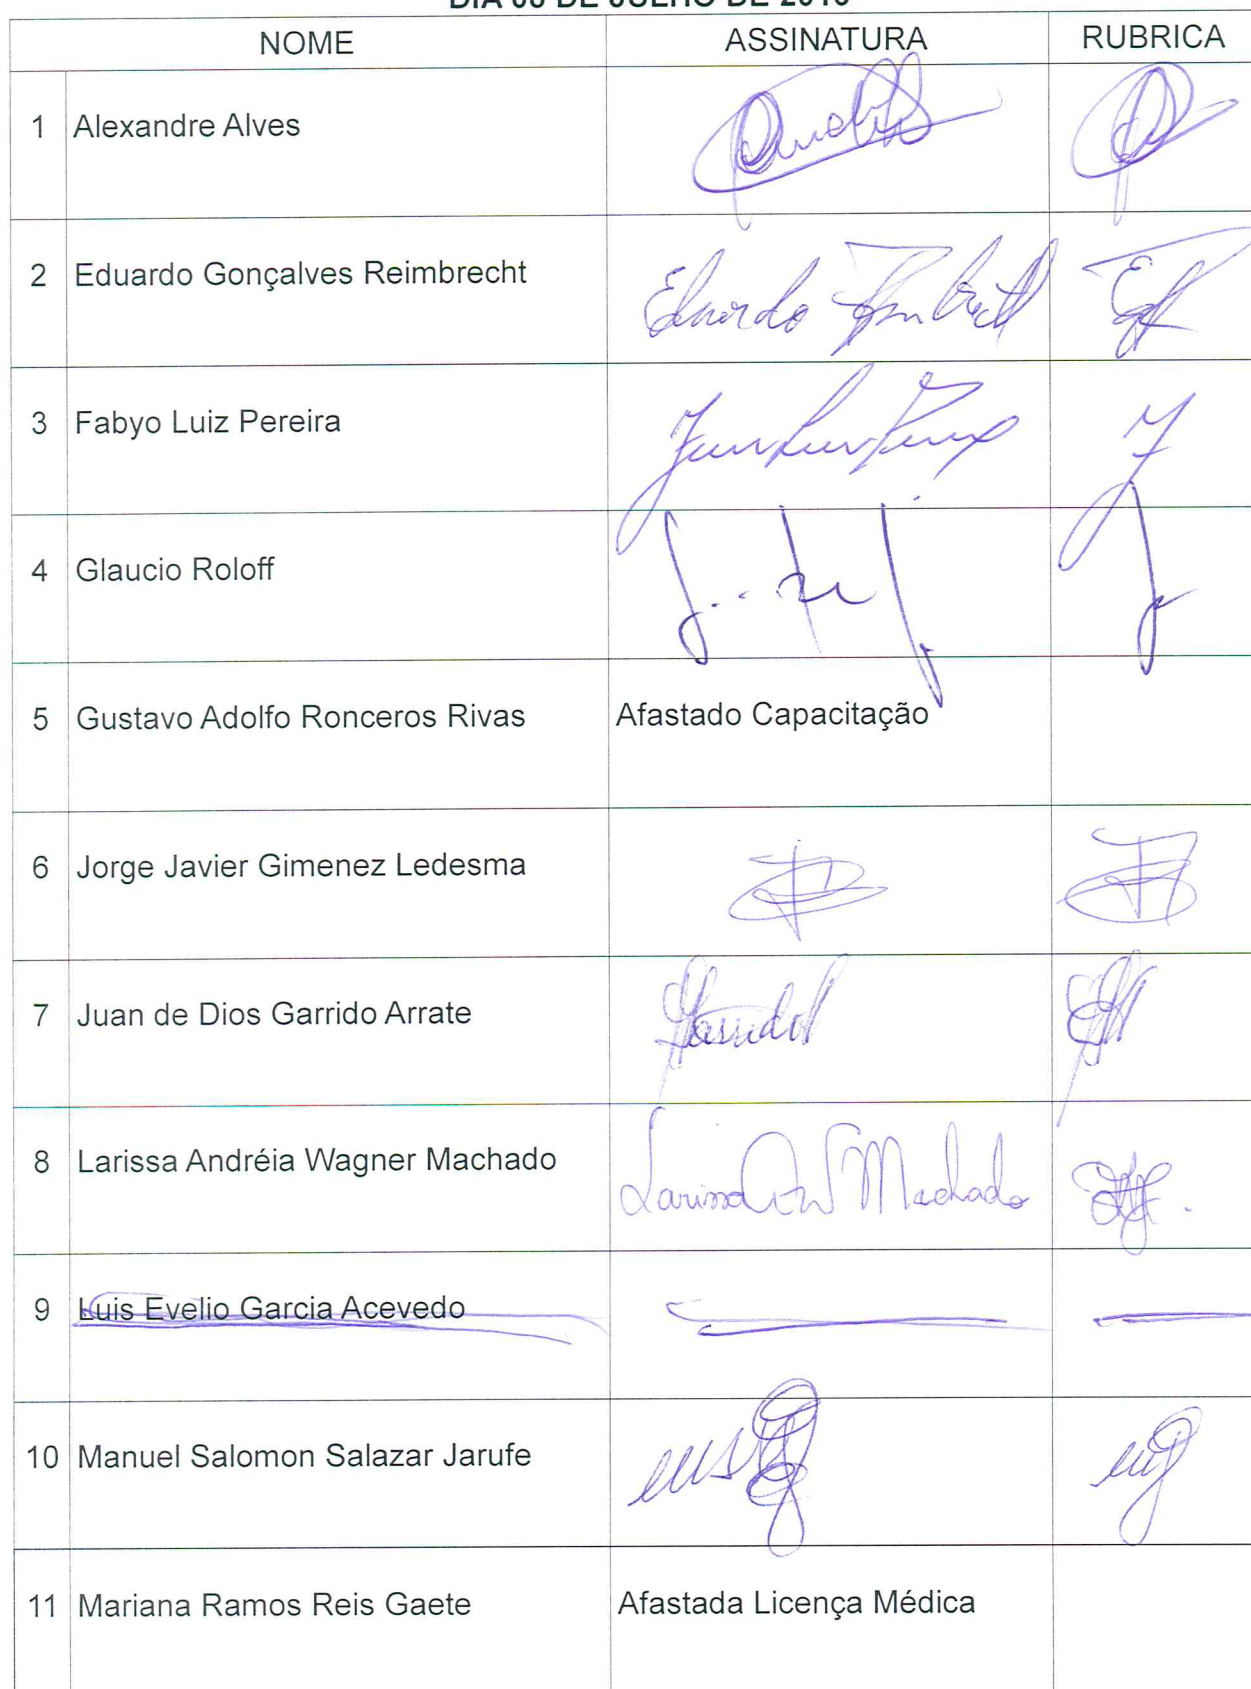 NOME ASSINATURA RUBRICA
1 Alexandre Alves
2 Eduardo Gonçalves Reimbrecht Eduardo
3 Fabyo Luiz Pereira
4 Glaucio Roloff
5 Gustavo Adolfo Ronceros Rivas Afastado Capacitação
6 Jorge Javier Gimenez Ledesma
7 Juan de Dios Garrido Arrate
8 Larissa Andréia Wagner Machado Larissa AW Machado
9 Luis Evelio Garcia Acevedo
10 Manuel Salomon Salazar Jarufe
11 Mariana Ramos Reis Gaete Afastada Licença Médica